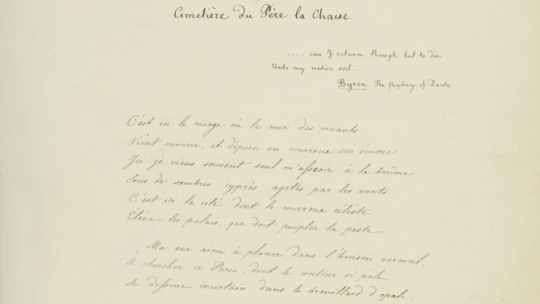 Cimetière du Père la Chaise
..... can I return, though but to die
Unto my native soil
Byron. The prophecy of Dante
C'est ici le rivage où la mer des vivants
Vient mourir, et dépose en courroux son écume.
Ici je viens souvent seul m'asseoir à la brûme
Sous de sombres cyprès agités par les vents.
C'est ici la cité dont le courroux céleste
Elève les palais, que doit peupler la peste
Ma vue aime à planer dans l'horison vermeil
A chercher ce Paris, dont le contour si pâle
Se dessine incertain dans le brouillard d'opale.